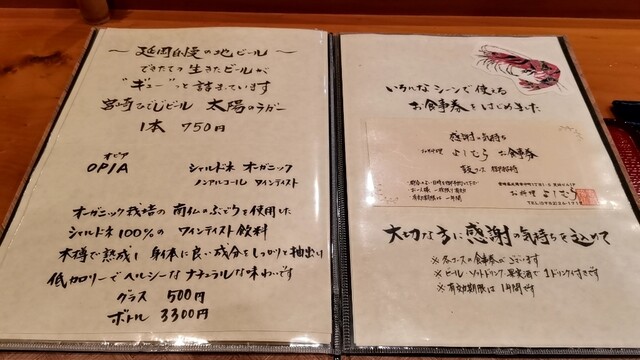 〜 延岡自慢の地ビール 〜
できたての生きたビールが
"ギュー"っと詰まっています
宮崎ひでじビール 太陽のラガー
1本 750円
オピア
OPIA
シャルドネ オーガニック
ノンアルコール ワインテイスト
オーガニック栽培の南仏のぶどうを使用した
シャルドネ100%の ワインテイスト飲料
木樽で熟成し 身体に良い成分をしっかりと抽出い
低カロリーでヘルシーなナチュラルな味わいです
グラス 500円
ボトル 3300円
いろんなシーンで使える
お食事券をはじめました
感謝の気持ち
よしむら お食事券
有効期限は一年間
お料理 よしむら
大切な方に感謝の気持ちを込めて
※各コースの食事券がございます
※ビール ソフトドリンク 果実酒で1ドリンク付きです
※有効期限は1年間です